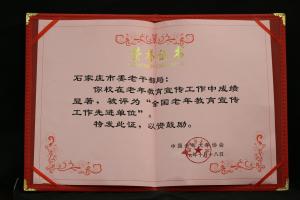 荣誉证书
石家庄市委老干部局：
你校在老年教育宣传工作中成绩
显著，被评为“全国老年教育宣传
工作先进单位”。
特发此证，以资鼓励。
中国老年大学协会